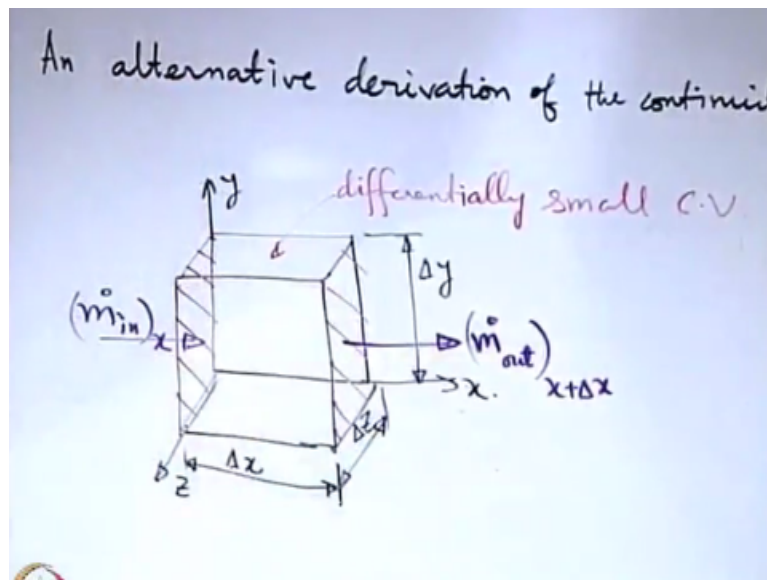 An alternative derivation of the
differentially small C.V
y
Δy
(ṁ in) x
(ṁ out) x+Δx
x.
Δz
Δx
z